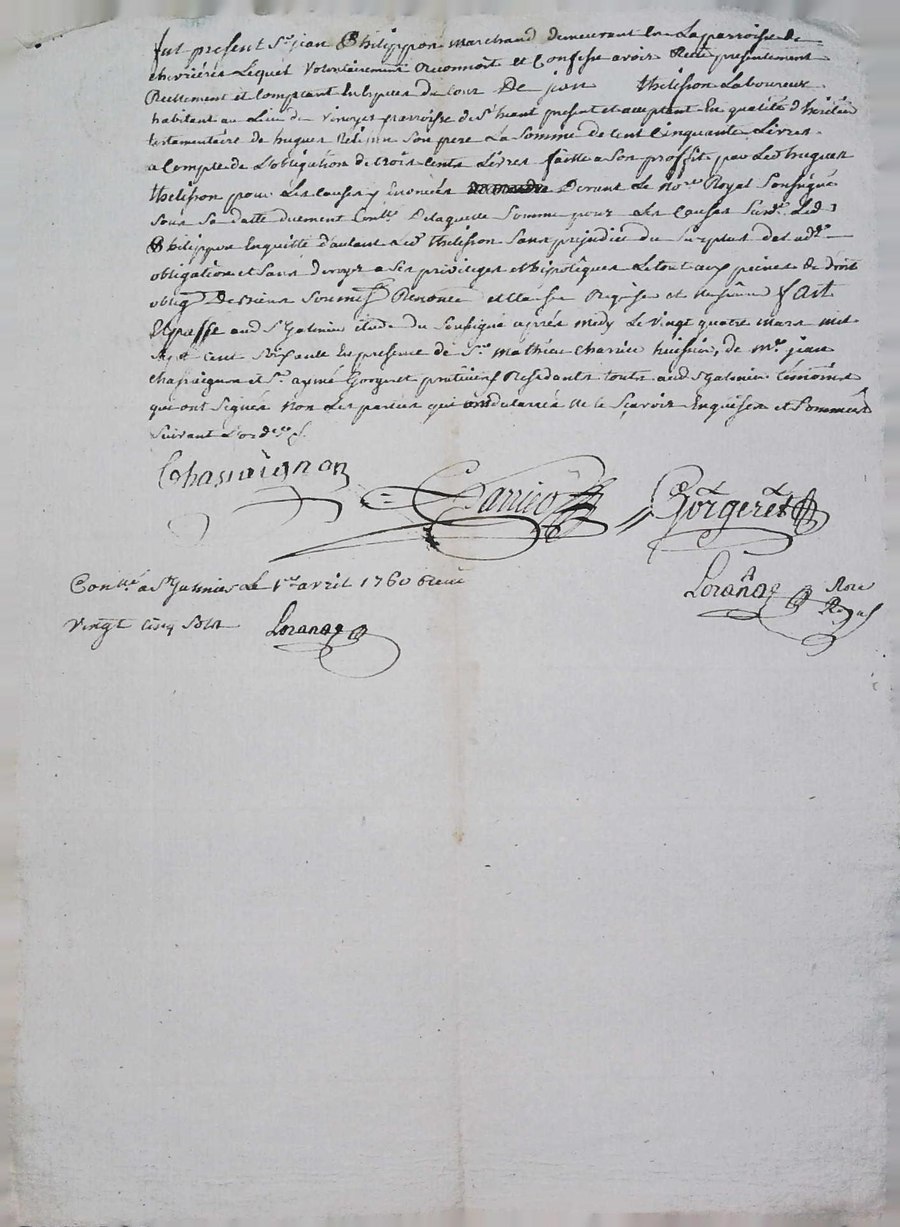 fut present Sr. jean Philippon marchand demeurant en La parroisse de
chevriéres Lequel volontairement reconnoit et Confesse avoir Receu presentement
Reellement et Comptant en Especes du cour De jean thelisson Laboureur
habitant au Lieu de parroisse de St. present et acceptant En qualité d'heritier
testamentaire de hugues thelisson Son pere La Somme de Cent Cinquante Livres
a Compte de L'obligation de trois Cents Livres faitte a Son proffit par Led. hugues
thelisson pour Les Causes y Enoncées Devant Le Nore. Royal Soussigné
Sous Sa datte duement Conllé. De laquelle Somme pour Les Causes Susd. Led.
Philippon Enquitte d'autant Led. thelisson Sans prejudice du Surplus de lad.
obligation et Sans deroger a Ses privileges et hipotêques Le tout aux peines de droit
oblig. De biens Soumis. Renonce. et Clauses Requises et fait
Et passe aud St Galmier étude du Soussigné aprés midy Le vingt quatre mars mil
Sept Cent Soixante En presence de Sr. mathieu huissier, de mr. jean
chassaignon et Sr. aymé Gorgeret praticiens Residants touts aud St galmier témoins
qui ont Signés non Les parties qui ont declarées ne le Sçavoir Enquises et Sommées
Suivant L'ordce.
Chassaignon Gorgeret
Conllé a St Galmier Le 1er avril 1760 Receu
Loranade Nore Royal
Vingt Cinq Sols Loranade